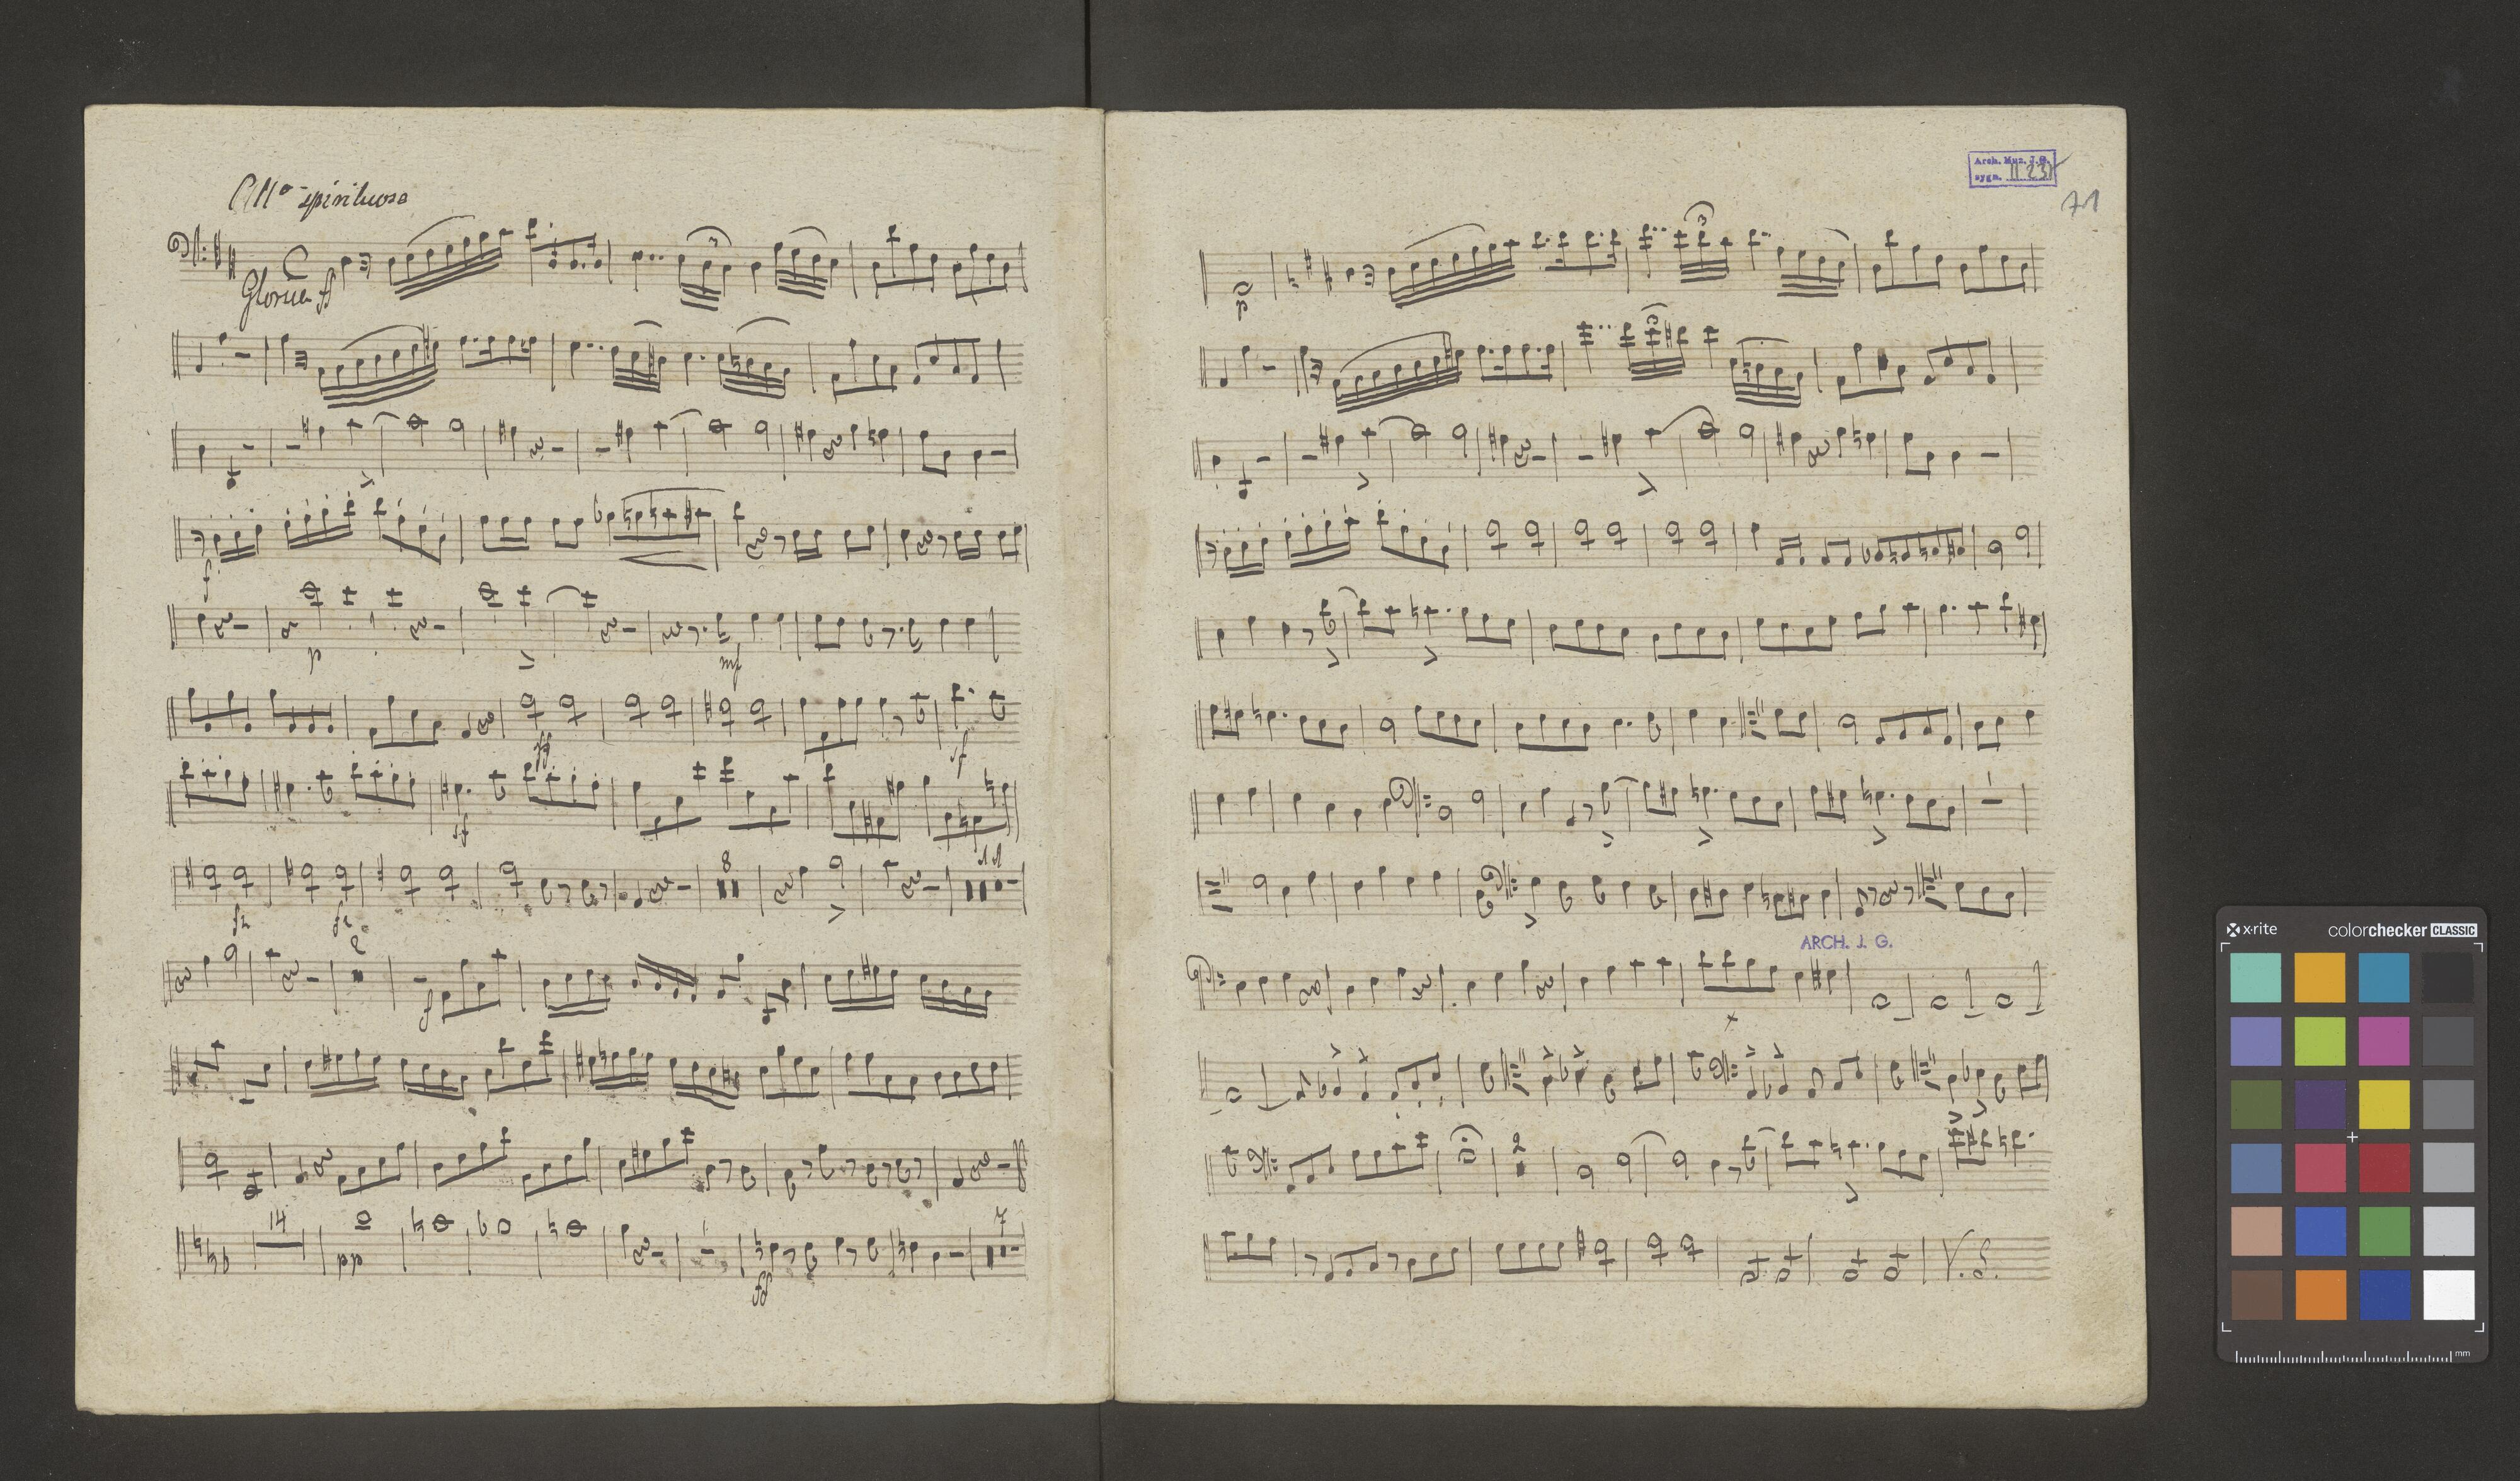 All° spirituoso
Gloria ff
3
f
p
mf
ff
sf
sf
8
11
fz
fz
2
f
14
7
pp
ff
Arch. Muz. J. G.
sygn. II 23
71
3
p
3
ARCH. J. G.
2
V. S.
x-rite
colorchecker CLASSIC
mm